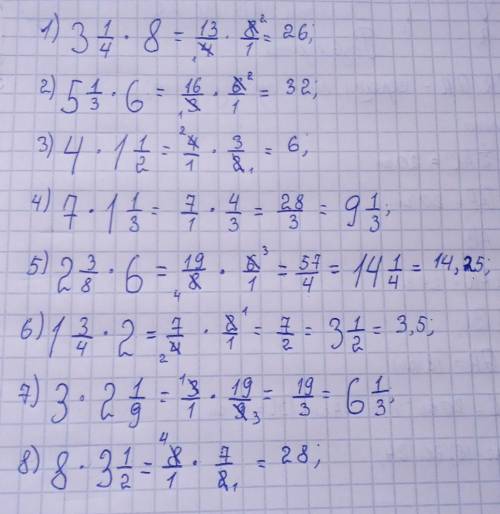 1) 3 1/4 · 8 = 13/4 1 · 8 2/1 = 26;
2) 5 1/3 · 6 = 16/3 1 · 6 2/1 = 32;
3) 4 · 1 1/2 = 4 2/1 · 3/2 1 = 6;
4) 7 · 1 1/3 = 7/1 · 4/3 = 28/3 = 9 1/3;
5) 2 3/8 · 6 = 19/8 4 · 6 3/1 = 57/4 = 14 1/4 = 14,25;
6) 1 3/4 · 2 = 7/4 2 · 2 1/1 = 7/2 = 3 1/2 = 3,5;
7) 3 · 2 1/9 = 3 1/1 · 19/9 3 = 19/3 = 6 1/3;
8) 8 · 3 1/2 = 8 4/1 · 7/2 1 = 28;